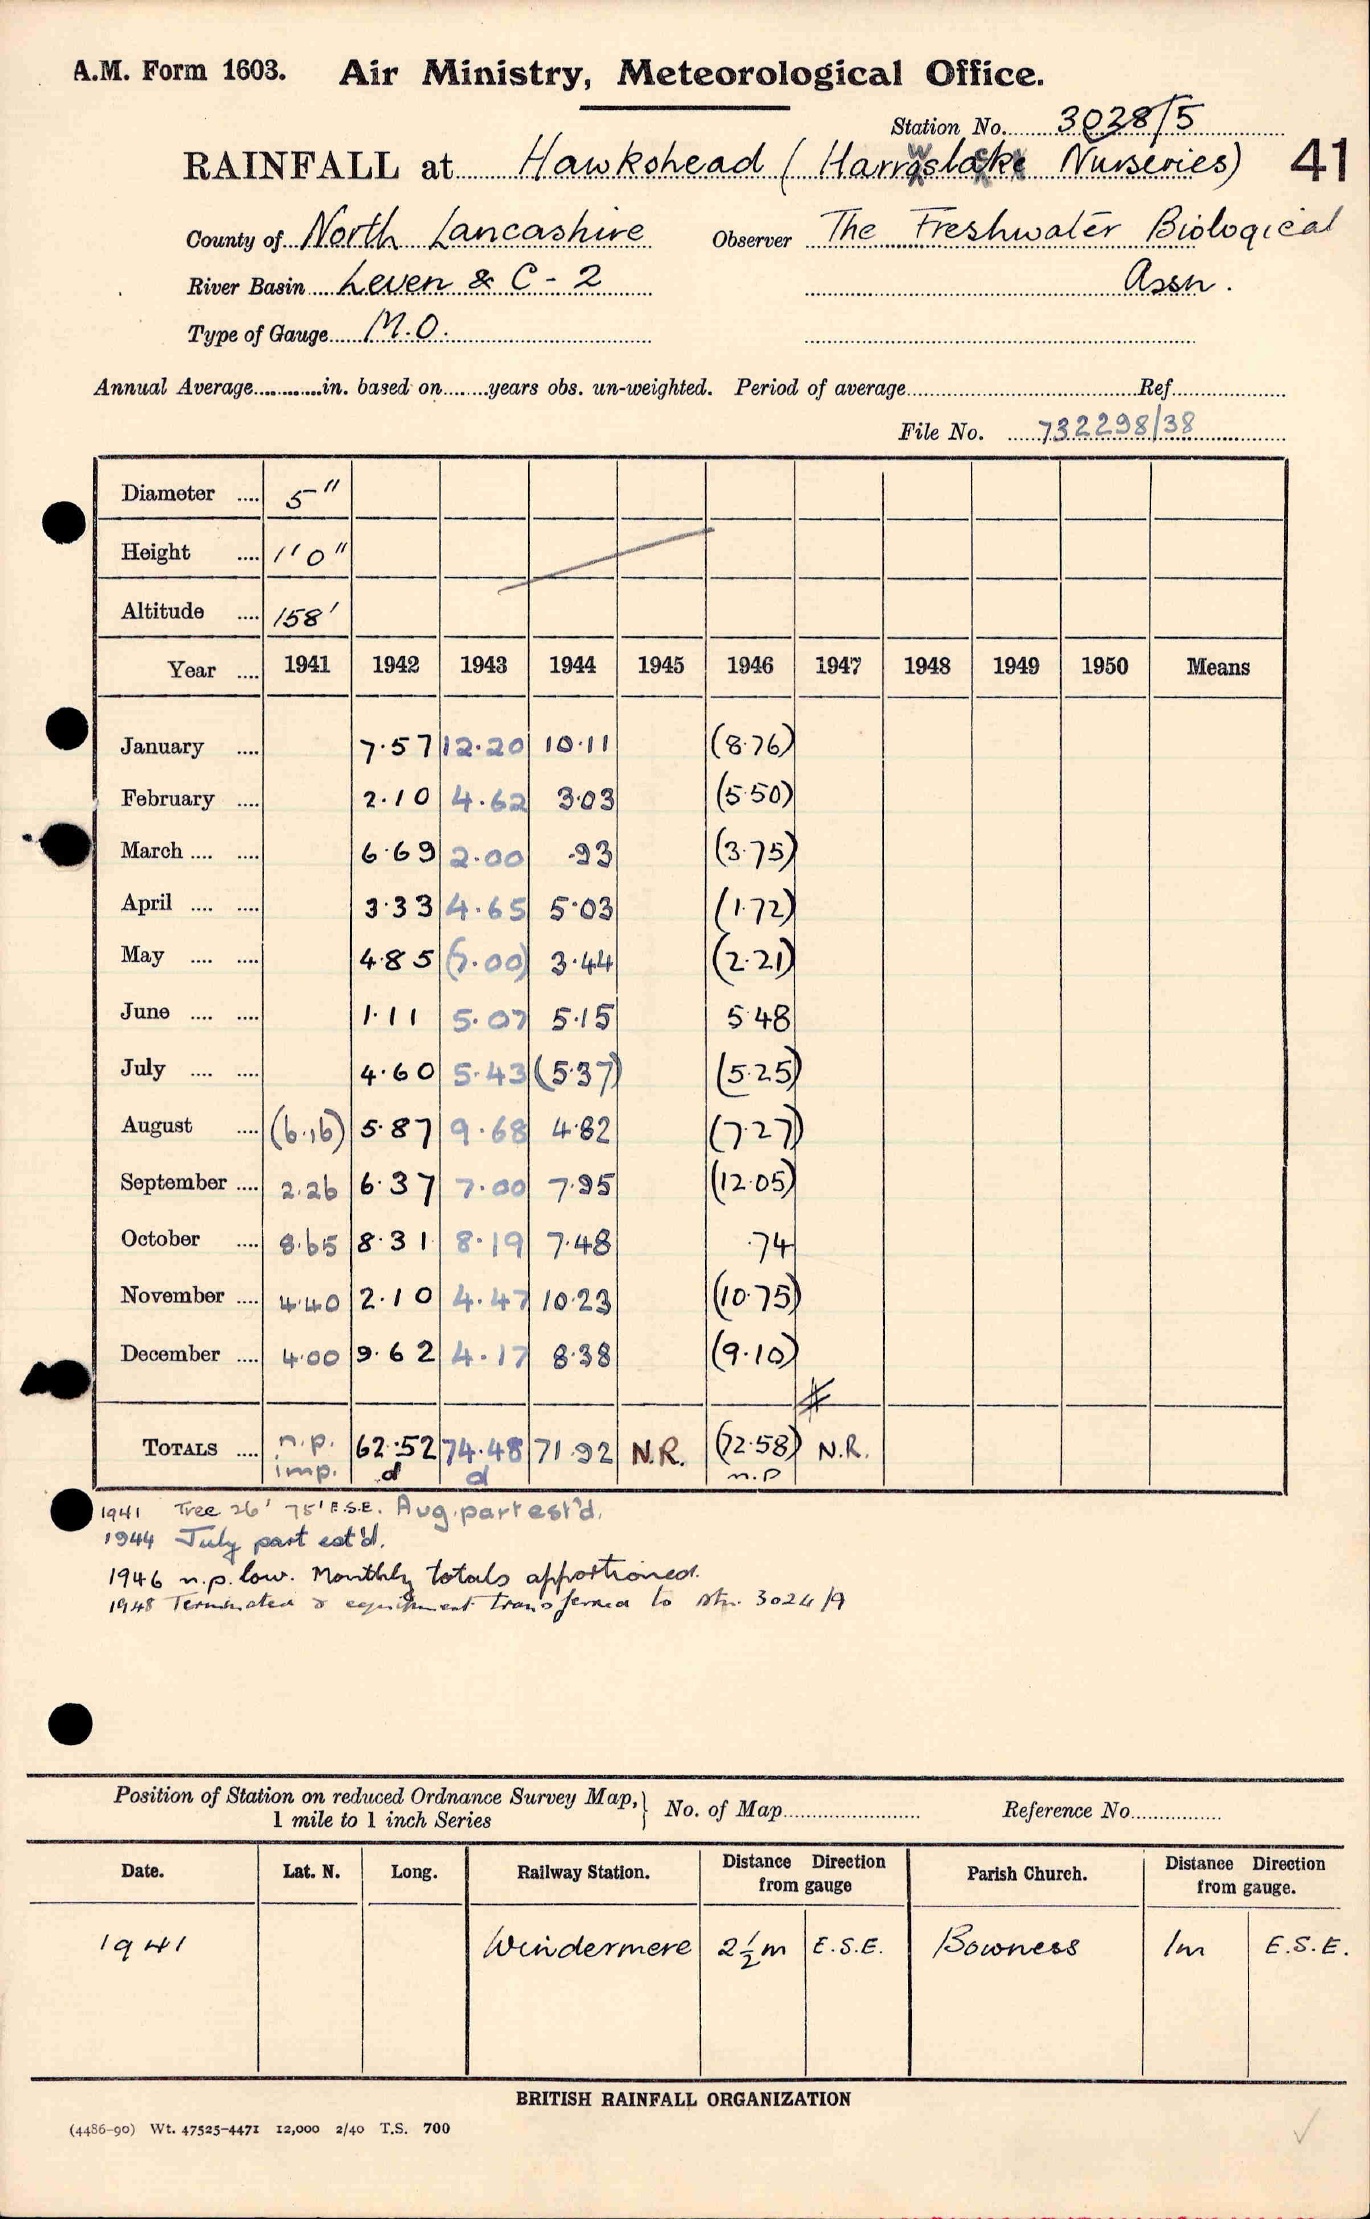 A.M. Form 1603. Air Ministry, Meteorological Office.
Station No. 3028/5
RAINFALL at Hawkshead ( Harrowslack Nurseries) 41
County of North Lancashire Observer The Freshwater Biological
River Basin Leven & C - 2 Assn.
Type of Gauge M.O.
Annual Average............in. based on.......years obs. un-weighted. Period of average Ref.
File No. 732298/38
Diameter .... 5"
Height .... 1'0"
Altitude .... 158'
Year .... 1941 1942 1943 1944 1945 1946 1947 1948 1949 1950 Means
January .... 7.57 12.20 10.11 (8.76)
February .... 2.10 4.62 3.03 (5.50)
March .... .... 6.69 2.00 .93 (3.75)
April .... .... 3.33 4.65 5.03 (1.72)
May .... .... 4.85 (7.00) 3.44 (2.21)
June .... .... 1.11 5.07 5.15 5.48
July .... .... 4.60 5.43 (5.37) (5.25)
August .... (6.16) 5.87 9.68 4.82 (7.27)
September .... 2.26 6.37 7.00 7.95 (12.05)
October .... 8.65 8.31 8.19 7.48 .74
November .... 4.40 2.10 4.47 10.23 (10.75)
December .... 4.00 9.62 4.17 8.38 (9.10)
TOTALS .... n.p. 62.52 74.48 71.92 N.R. (72.58) N.R.
imp. d d n.p
1941 Tree 26' 75' E.S.E. Aug. part est'd.
1944 July part est'd.
1946 n.p. low. Monthly totals apportioned.
1948 Terminated & equipment transferred to stn. 3024/9
Position of Station on reduced Ordnance Survey Map,} No. of Map Reference No.
1 mile to 1 inch Series
Date. Lat. N. Long. Railway Station. Distance Direction Parish Church. Distance Direction
from gauge from gauge.
1941 Windermere 2½m E.S.E. Bowness 1m E.S.E.
BRITISH RAINFALL ORGANIZATION
(4486-90) Wt. 47525-4471 12,000 2/40 T.S. 700